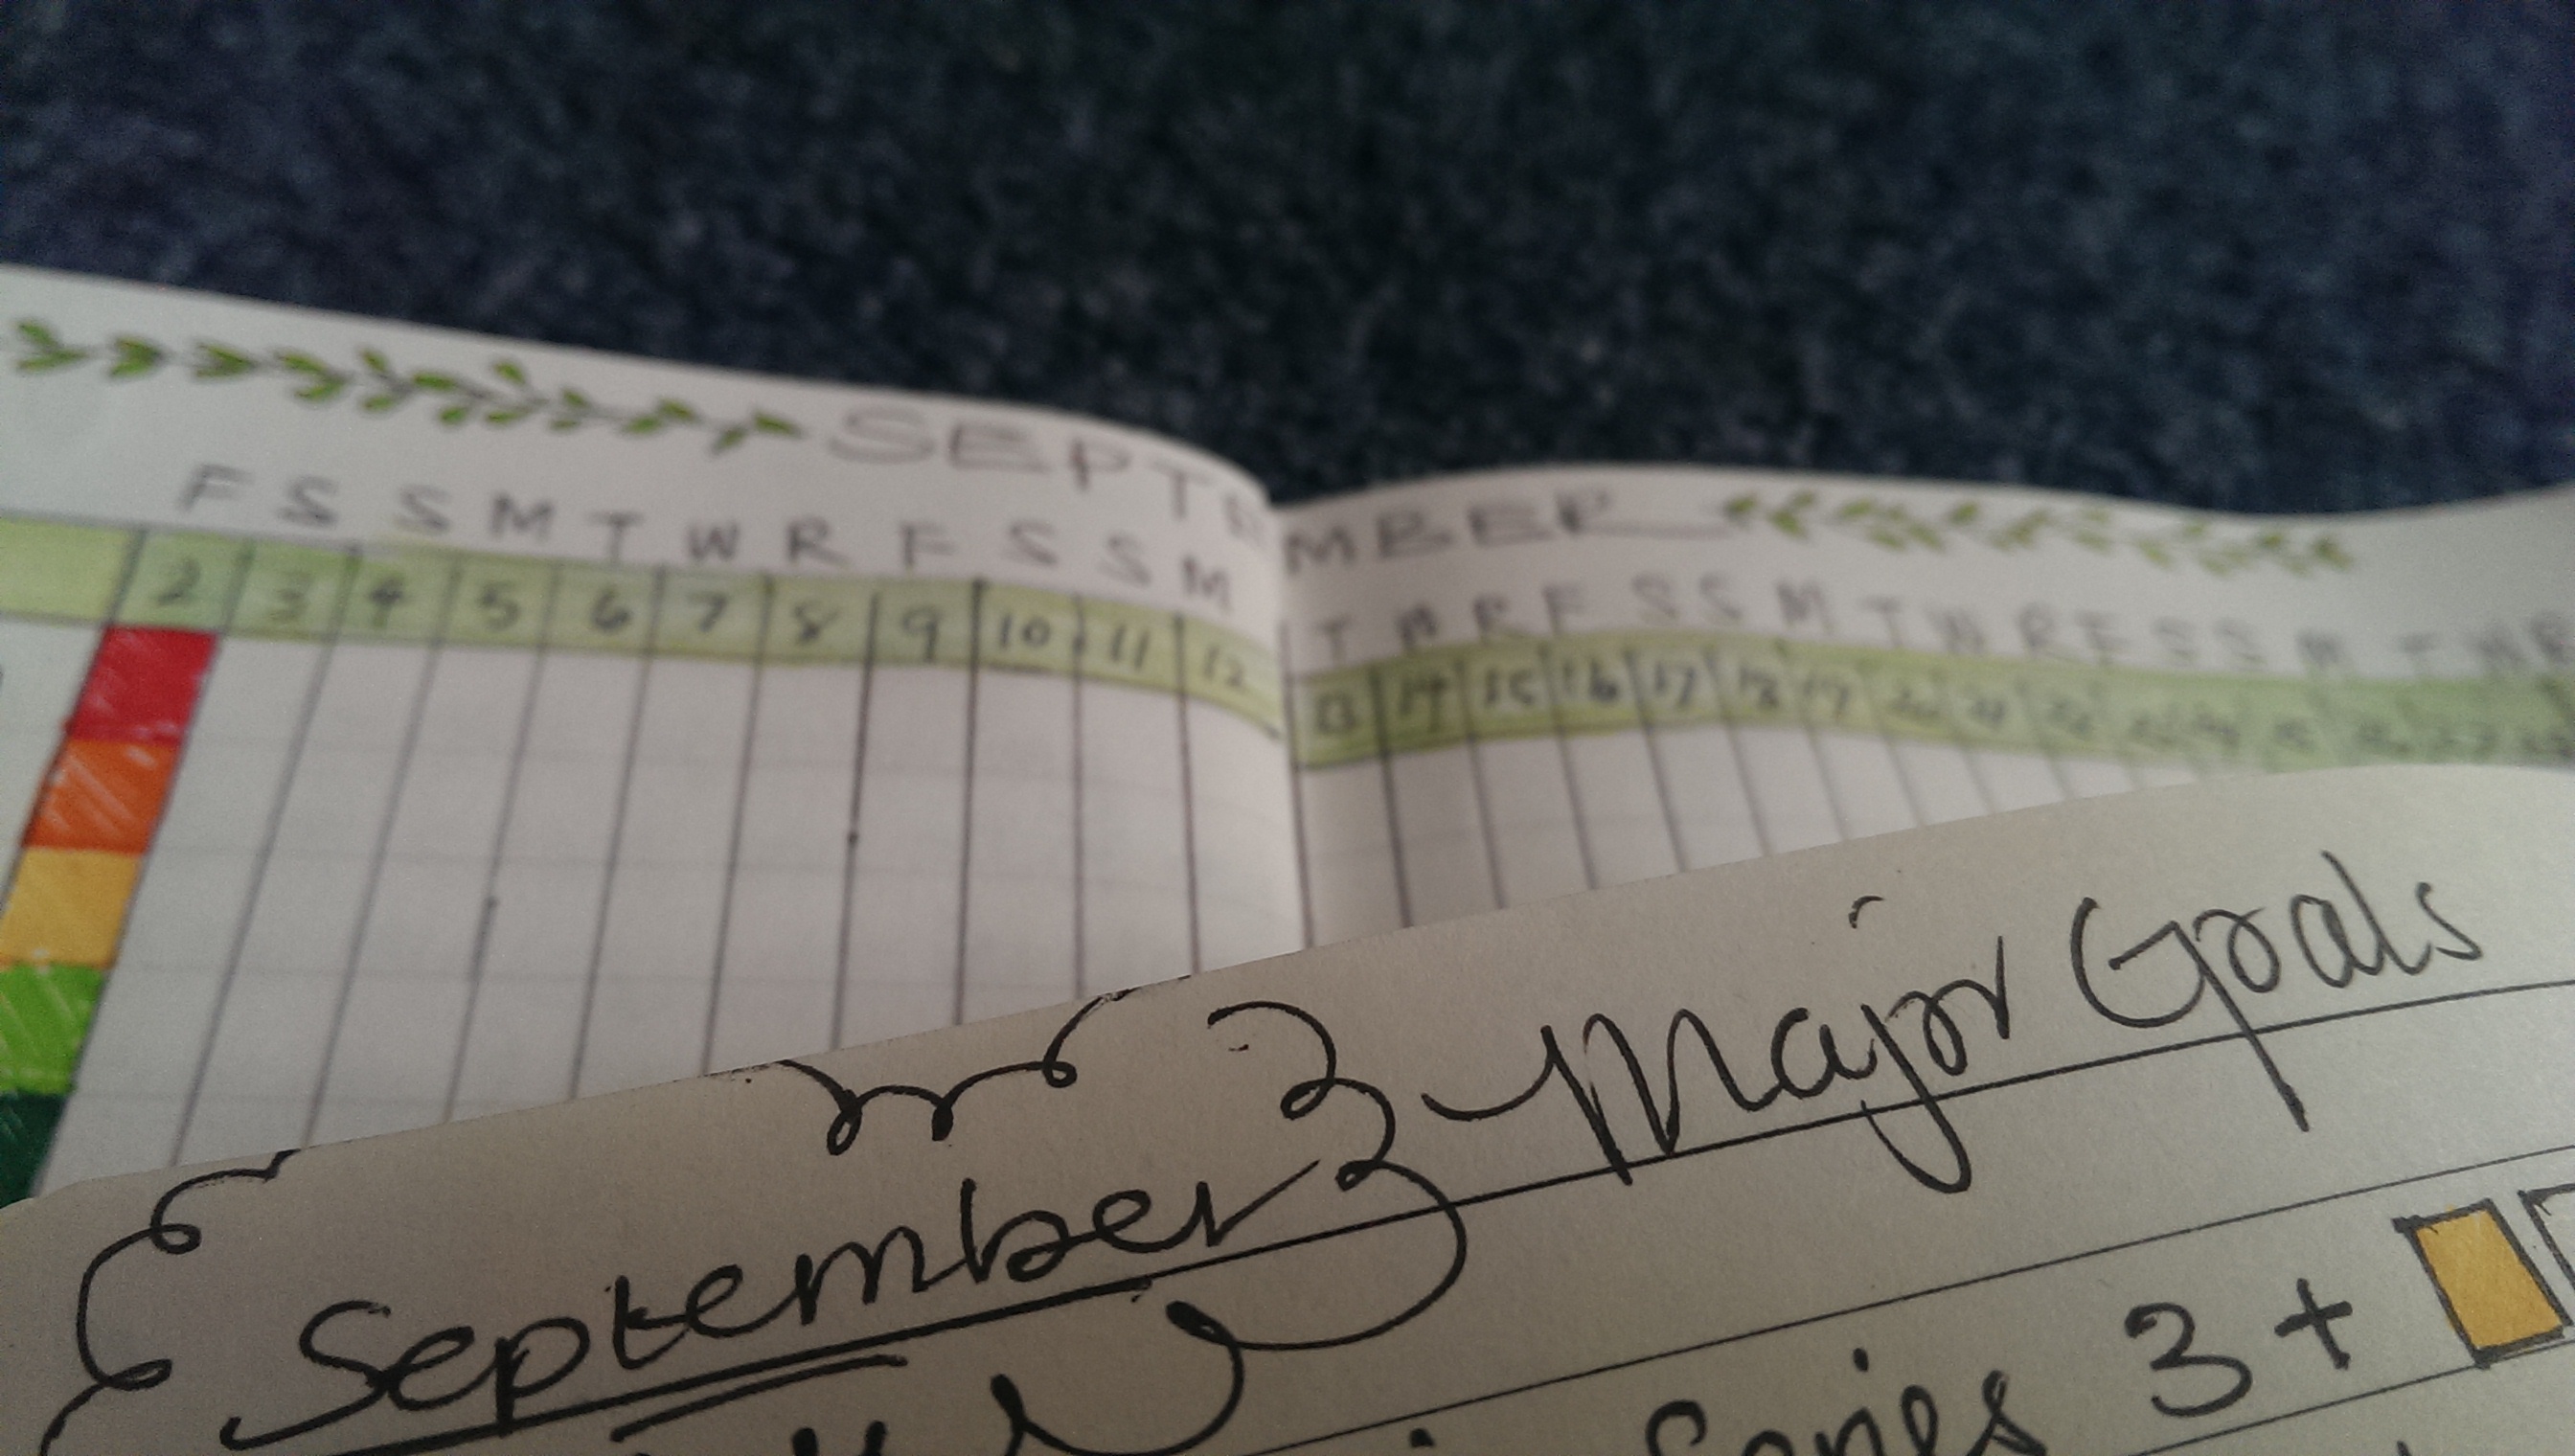 SEPTEMBER
F S S M T W R F S S M T W R F S S M T W R F S S M T W R
2 3 4 5 6 7 8 9 10 11 12 13 14 15 16 17 18 19 20 21 22 23 24 25 26 27
September Major Goals
Series 3 +